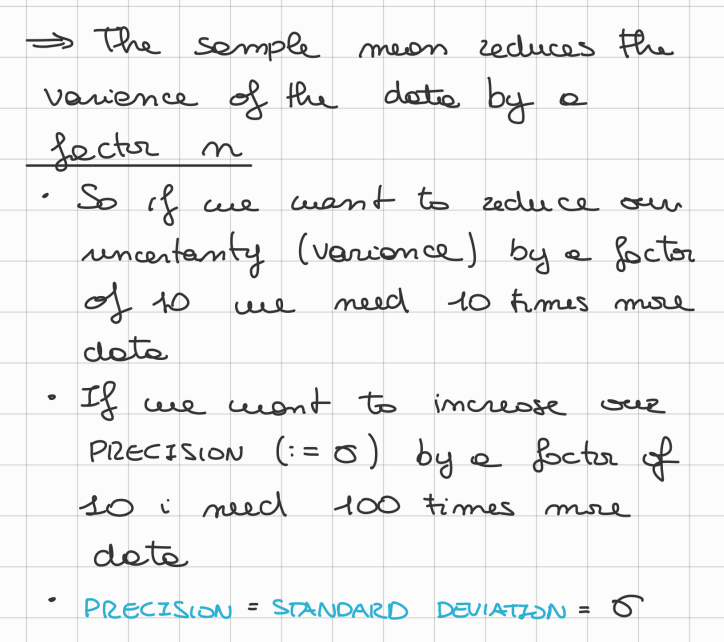 ⇒ The sample mean reduces the
varience of the data by a
factor n
· So if we want to reduce our
uncertanty (varience) by a factor
of 10 we need 10 times more
data
· If we want to increase our
PRECISION (:= σ) by a factor of
10 i need 100 times more
data
· PRECISION = STANDARD DEVIATION = σ